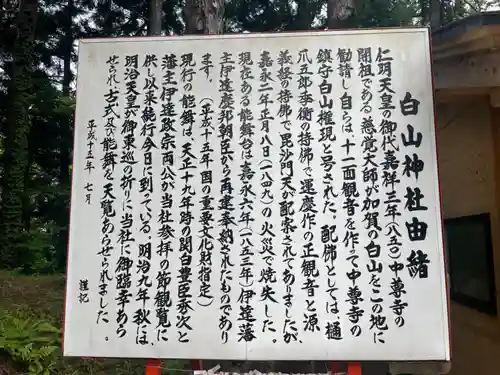 白山神社由緒
仁明天皇の御代嘉祥三年（八五〇）中尊寺の
開祖である慈覚大師が加賀の白山をこの地に
勧請し自らは、十一面観音を作って中尊寺の
鎮守白山権現と号された。配師としては、樋
爪五郎季衡の持佛で運慶作の正観音と源
義経の持佛で毘沙門天が配案されてありましたが、
嘉永二年正月八日（一八四九）の火災で焼失した。
現在ある能舞台は嘉永六年（一八五三年）伊達藩
主伊達慶邦朝臣から再建奉納されたものであり
ます。（平成十五年国の重要文化財指定）
現行の能舞は、天正十九年時の関白豊臣秀次と
藩主伊達政宗両公が当社参拝の節観覧に
供し以来能行今日に到っている。明治九年秋には、
明治天皇が御東巡の折りに当社に御臨幸あら
せられ、古式及び能舞を天覧あらせられました。
平成十五年七月
謹記